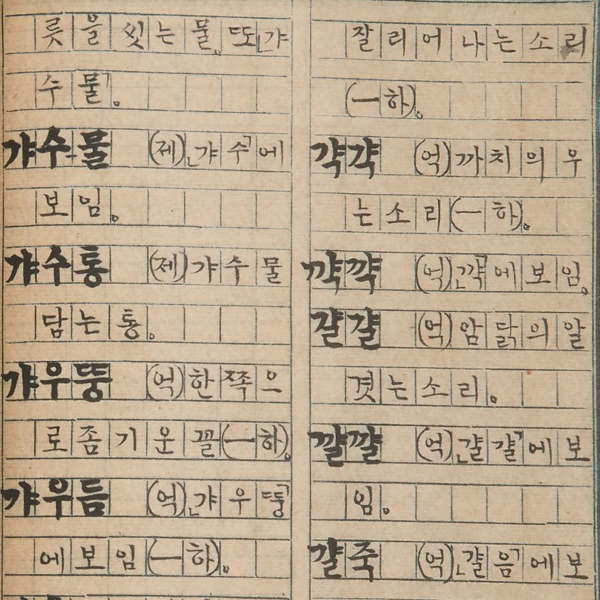 릇을 씻는 물. 또 「갸
수물」。
갸수-물 (제) 「갸수」에
보임。
갸수통 (제) 갸수물
담는 통。
갸우뚱 (억) 한쪽으
로 좀 기운 꼴(—하)。
갸우듬 (억) 「갸우뚱」
에 보임(—하)。
잘리어 나는 소리
(—하)。
갹갹 (억) 까치의 우
는 소리(—하)。
꺅꺅 (억) 「꺅」에 보임。
걀걀 (억) 암닭의 알
겻는 소리。
꺌꺌 (억) 「걀걀」에 보
임。
걀죽 (억) 「걀음」에 보